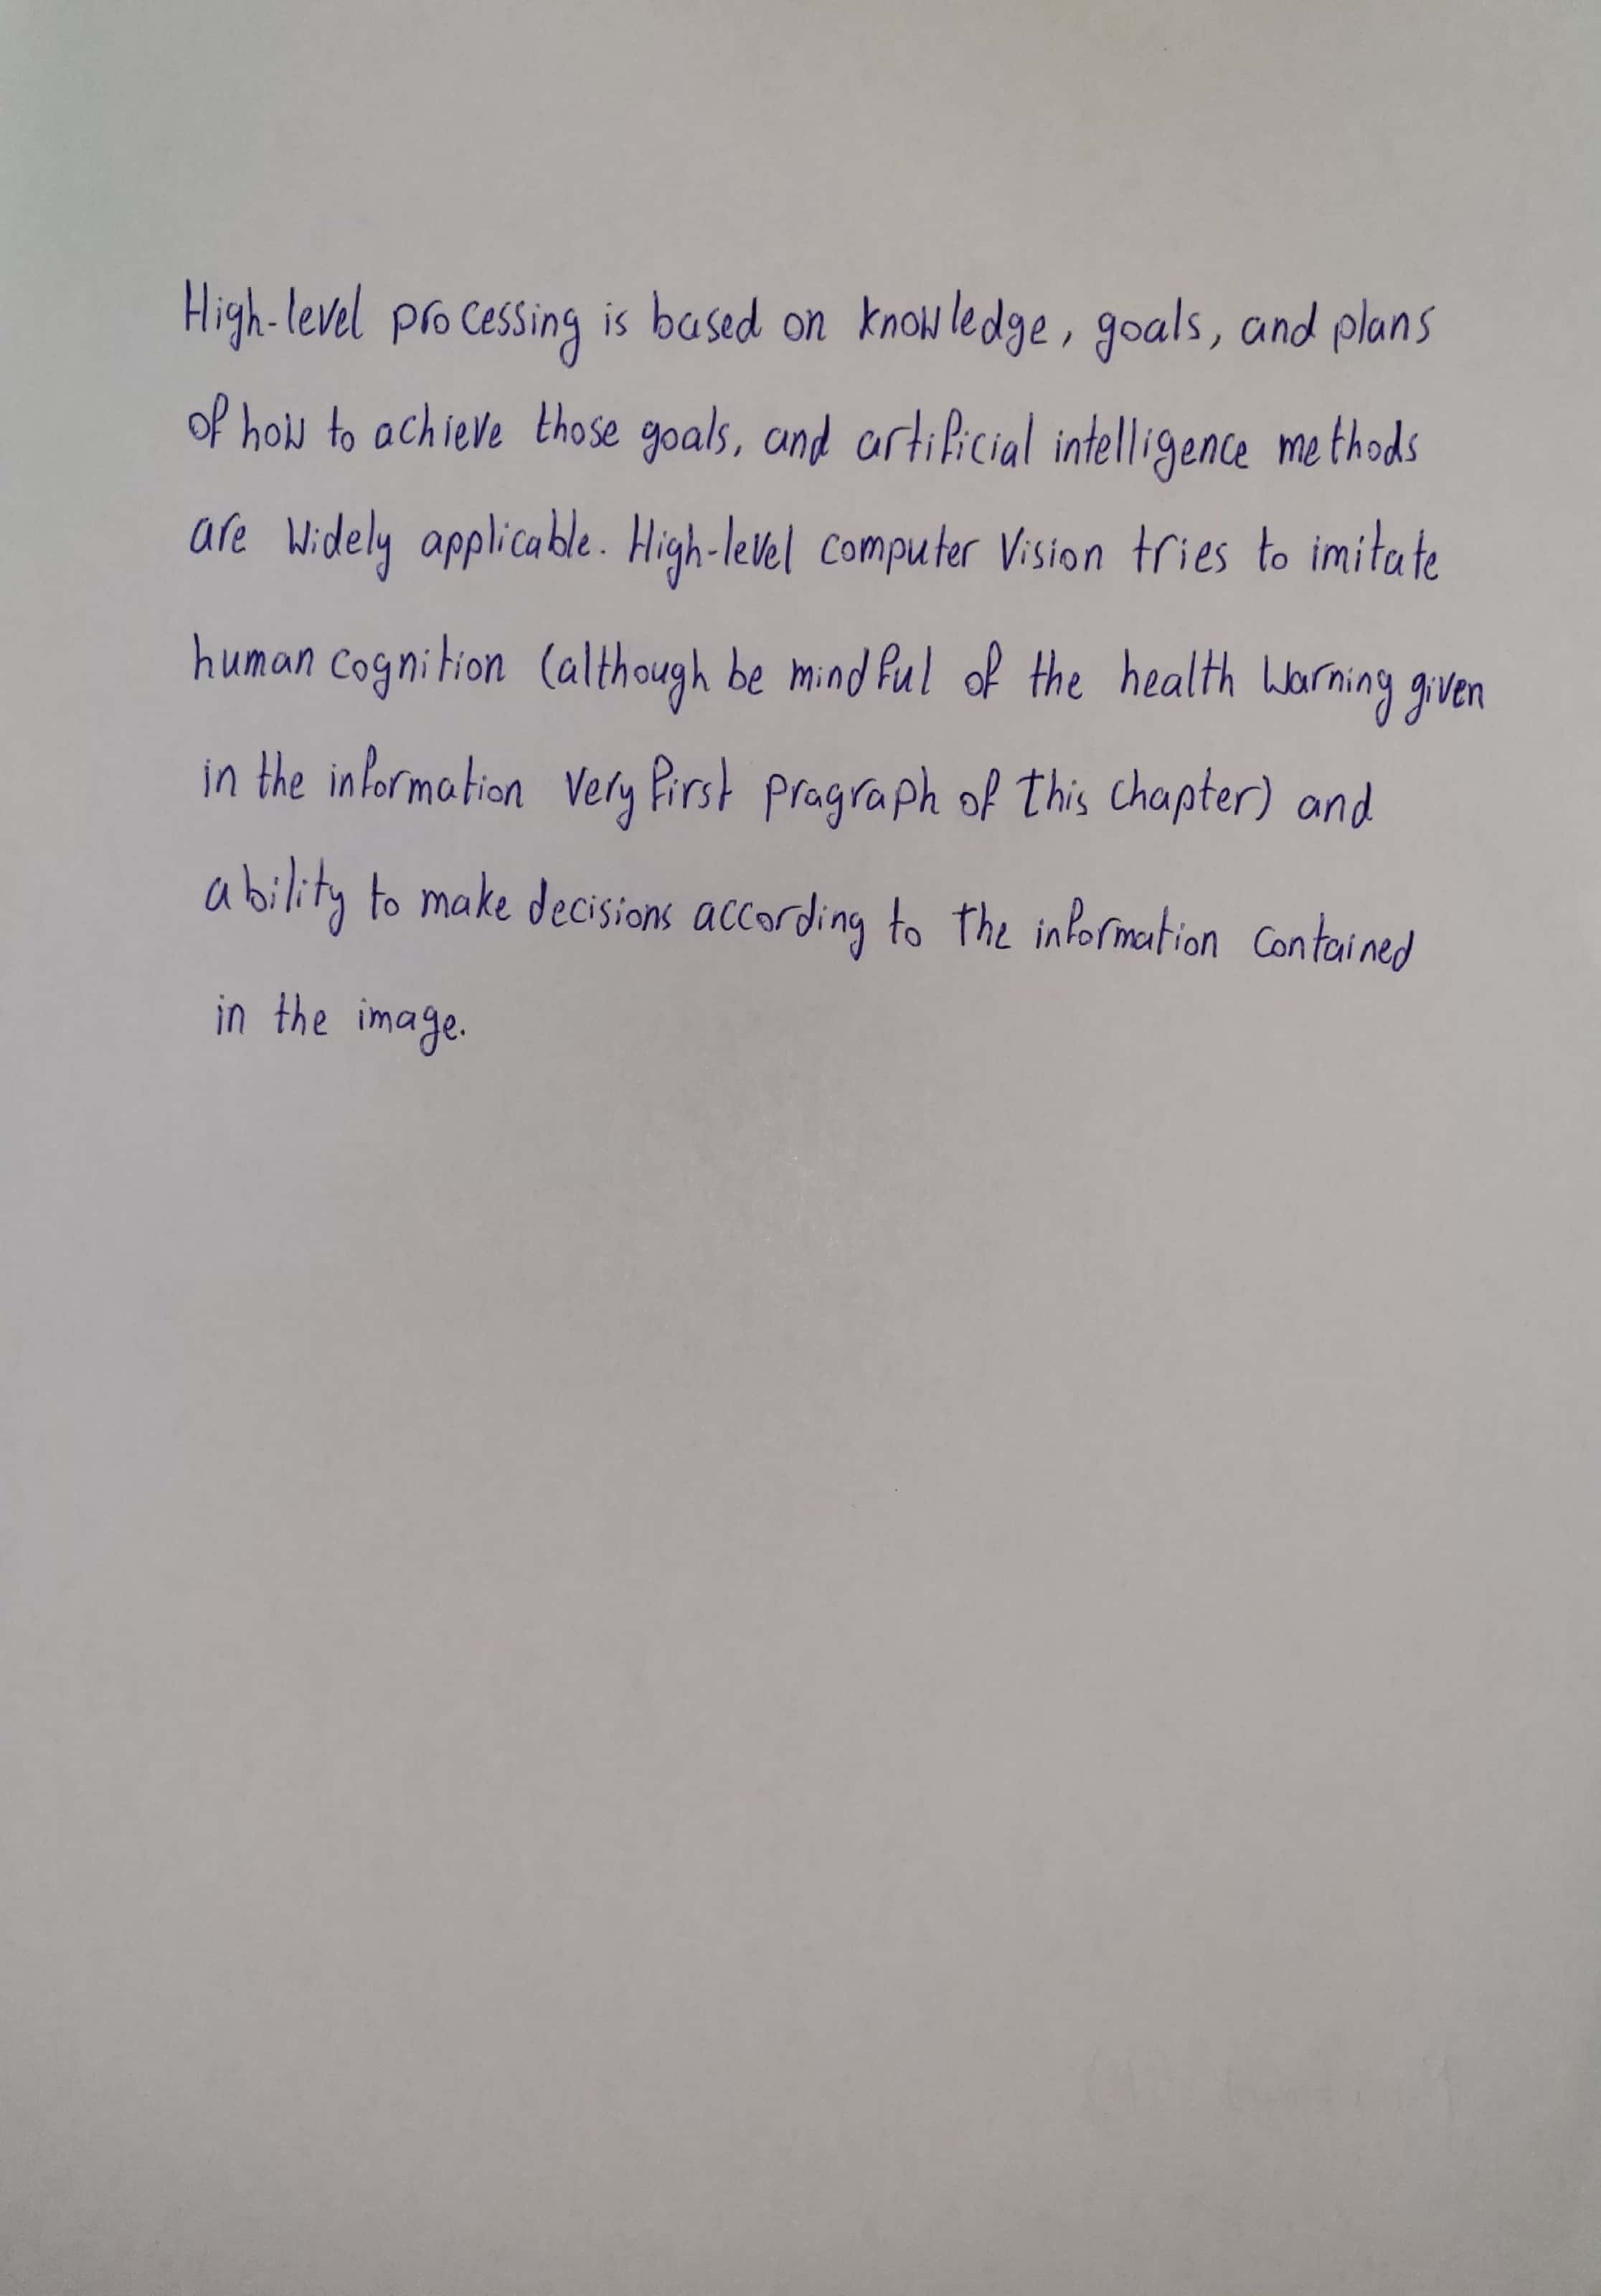 High-level processing is based on knowledge, goals, and plans
of how to achieve those goals, and artificial intelligence methods
are widely applicable. High-level computer vision tries to imitate
human cognition (although be mindful of the health warning given
in the information very first pragraph of this chapter) and
ability to make decisions according to the information contained
in the image.